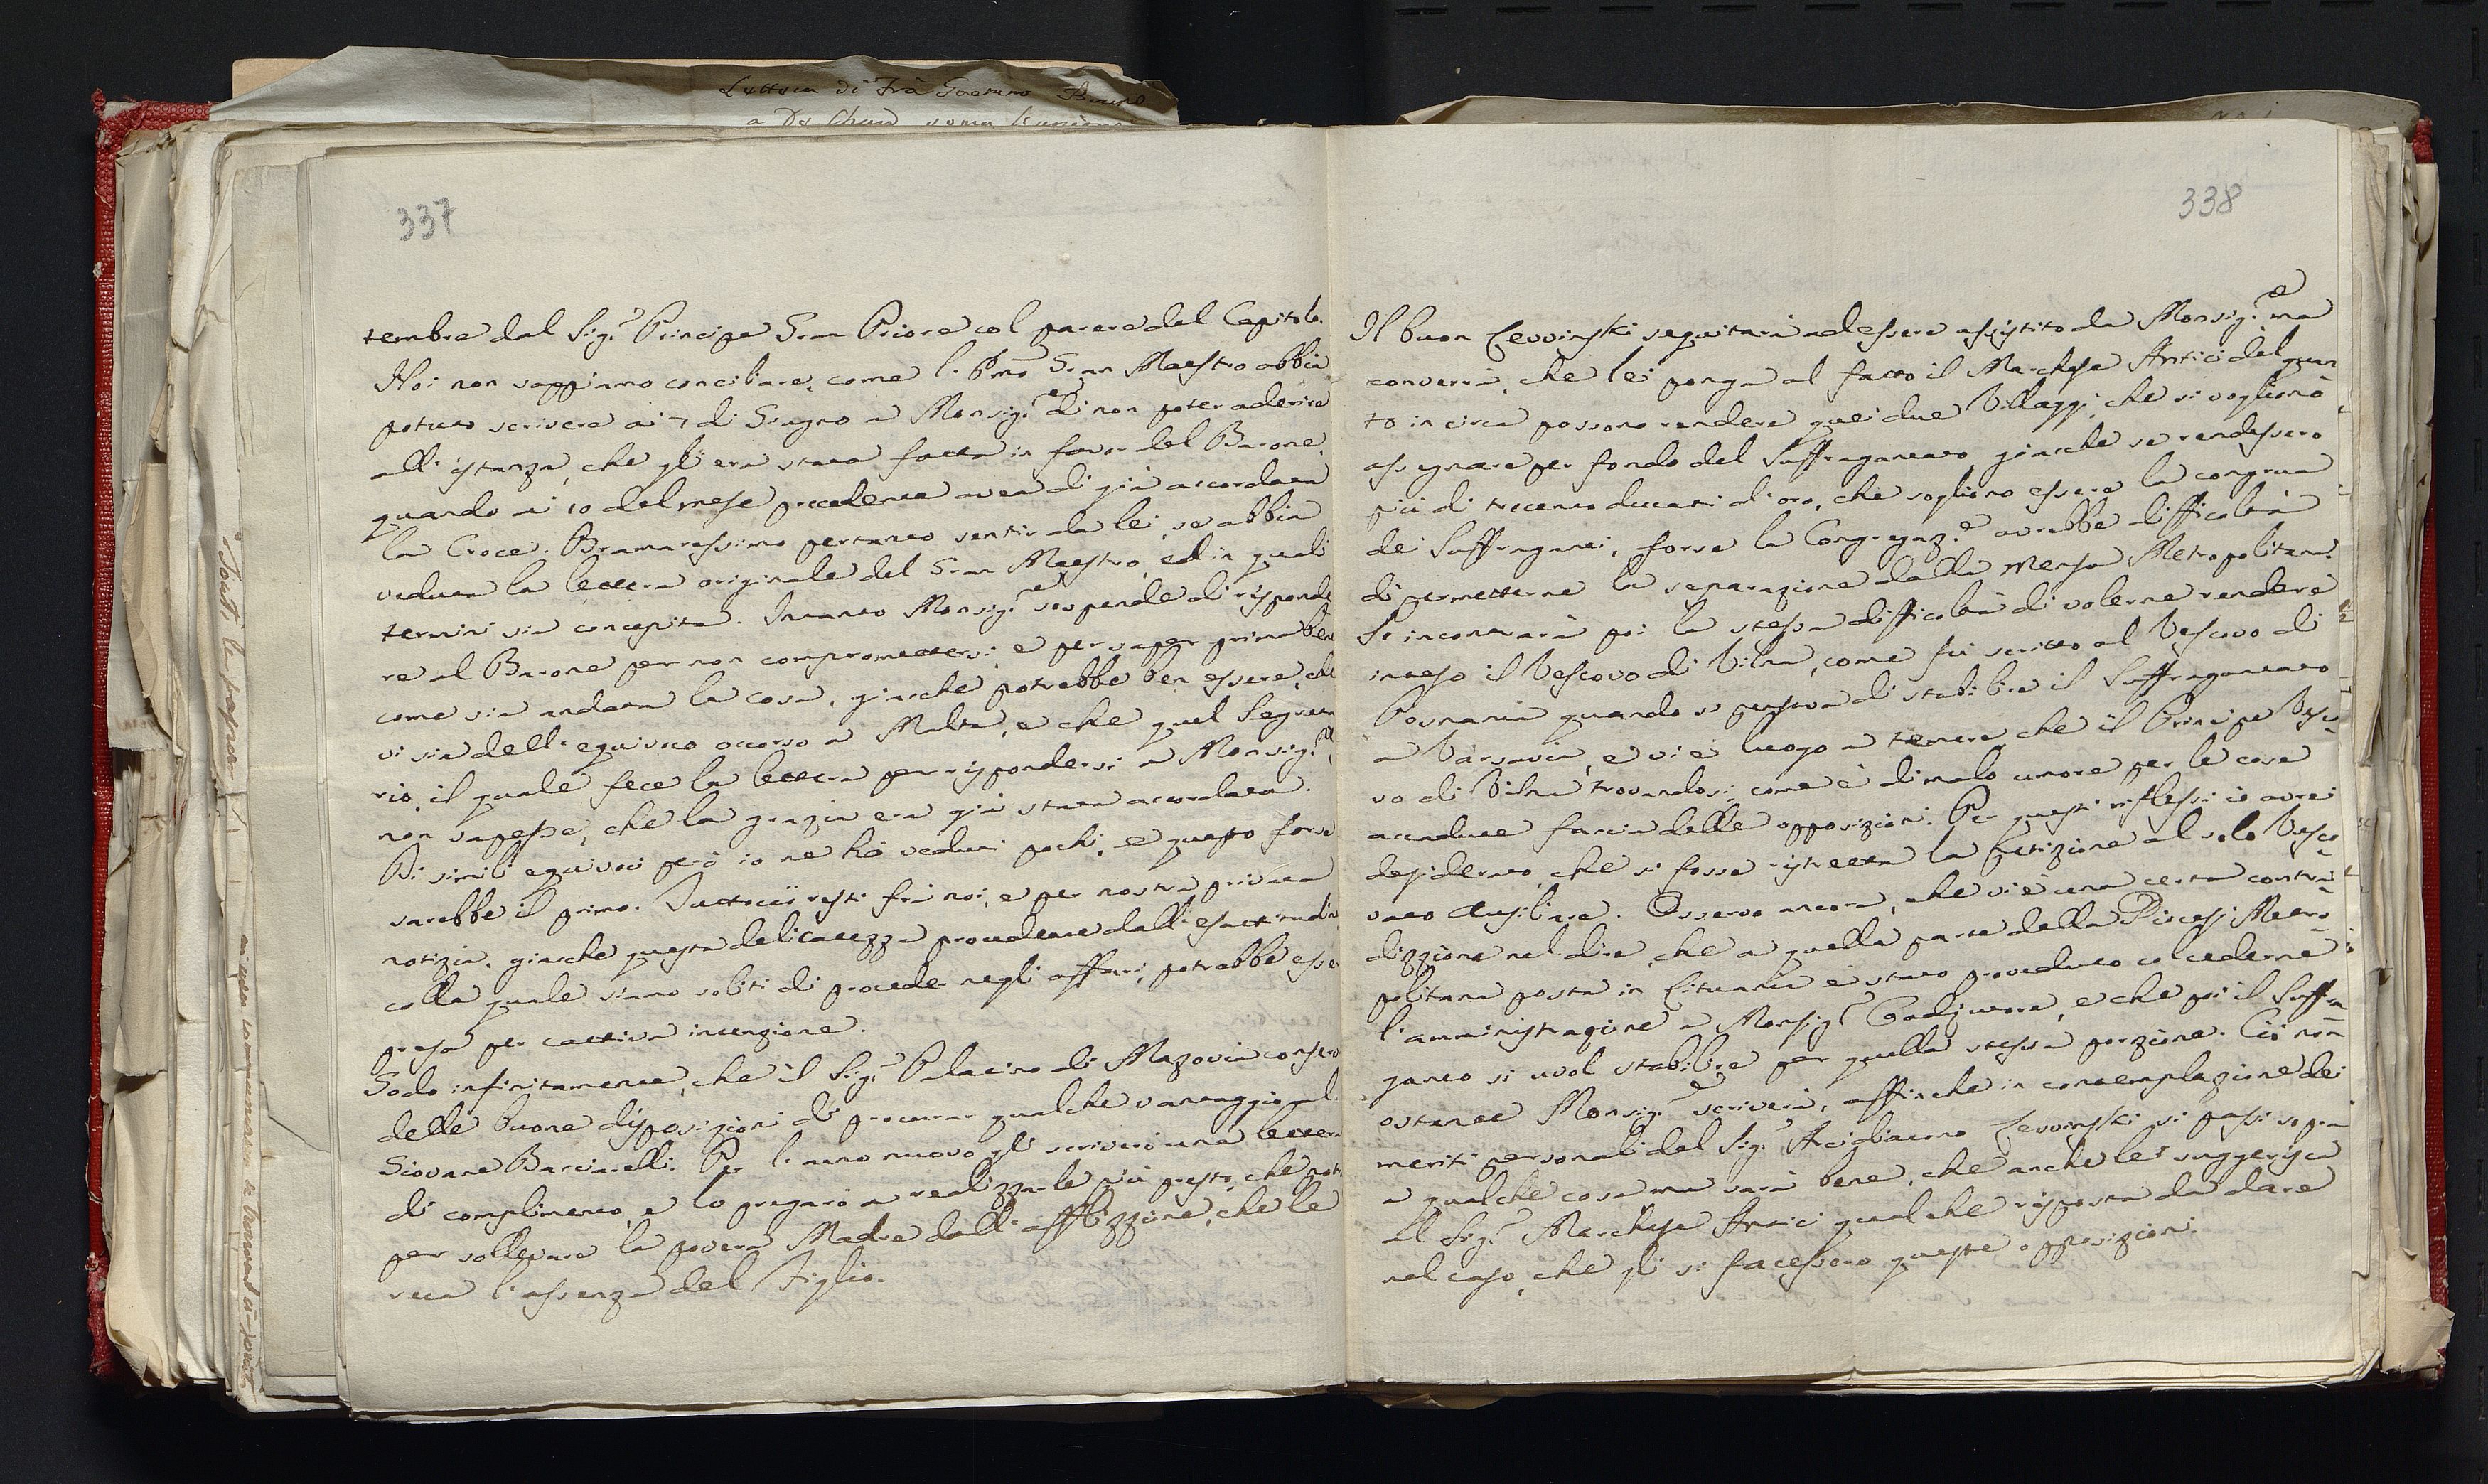 Lettera di Frà Gaetano Bruno
337
tembre dal Sig.r Principe Gran Priore col parere del Capitolo.
Noi non sappiamo conciliare, come l'Emo Gran Maestro abbia
potuto scrivere ai 7 di Giugno a Monsig.re di non poter aderire
all'istanza, che gli era stata fatta in favor del Barone,
quando ai 10 del mese precedente avea di già accordata
la Croce. Bramaressimo pertanto sentir da lei, se abbia
veduta la lettera originale del Gran Maestro, ed in quali
termini sia concepita. Intanto Monsig.re sospende di risponde
re al Barone per non compromettersi, e per saper prima bene
come sia andata la cosa, giacche potrebbe ben essere, che
vi sia dell'equivoco occorso a Malta, e che quel Segreta
rio, il quale fece la lettera per rispondersi a Monsig.re
non sapesse, che la grazia era già stata accordata.
Di simili equivoci però io ne hò veduti pochi, e questo forse
sarebbe il primo. Tuttociò resti frà noi, e per nostra privata
notizia, giacche questa delicatezza procedente dall'esattitudine
colla quale siamo soliti di proceder negli affari, potrebbe esser
presa per cattiva intenzione.
Godo infinitamente, che il Sig.r Palatino di Mazovia conservi
delle buone disposizioni di procurar qualche vantaggio al
Giovane Bacciarelli. Per l'anno nuovo gli scriverò una lettera
di complimento, e lo pregarò a realizzarle più presto, che potrà
per sollevare la povera Madre dall'afflizzione, che le
reca l'assenza del Figlio.
338
Il buon Lewinski seguitarà ad essere assistito da Monsig.re ma
converrà, che lei ponga al fatto il Marchese Antici del quan
to in circa possono rendere quei due Villaggi, che si vogliono
assegnare per fondo del Suffraganeato, giacche se rendessero
più di trecento ducati d'oro, che sogliono essere la congrua
dei Suffraganei, forse la Congregaz.e avrebbe difficoltà
di permetterne la separazione dalla Mensa Metropolitana.
S'incontrarà poi la stessa difficoltà di volerne rendere
inteso il Vescovo di Vilna, come fù scritto al Vescovo di
Posnania quando si pensava di stabilire il Suffraganeato
a Varsavia, e vi è luogo a temere, che il Principe Vesco
vo di Vilna trovandosi, come è di malo umore per le cose
accadute faccia delle opposizioni. Per questi riflessi io avrei
desiderato, che si fosse ristretta la petizione al solo Vesco
vato Ausiliare. Osservo ancora, che vi è una certa contra
dizzione nel dire, che a quella parte della Diocesi Metro
politana posta in Lituania è stato proveduto col cederne
l'amministrazione a Monsig.r Coadjutore, e che poi il Suffra
ganeo si vuol stabilire per quella stessa porzione. Ciò non
ostante Monsig.re scriverà, affinche in contemplazione dei
meriti personali del Sig.r Arcidiacono Lewinski si passi sopra
a qualche cosa, ma sarà bene, che anche lei suggerisca
al Sig.r Marchese Antici qualche risposta da dare
nel caso, che gli si facessero queste opposizioni.